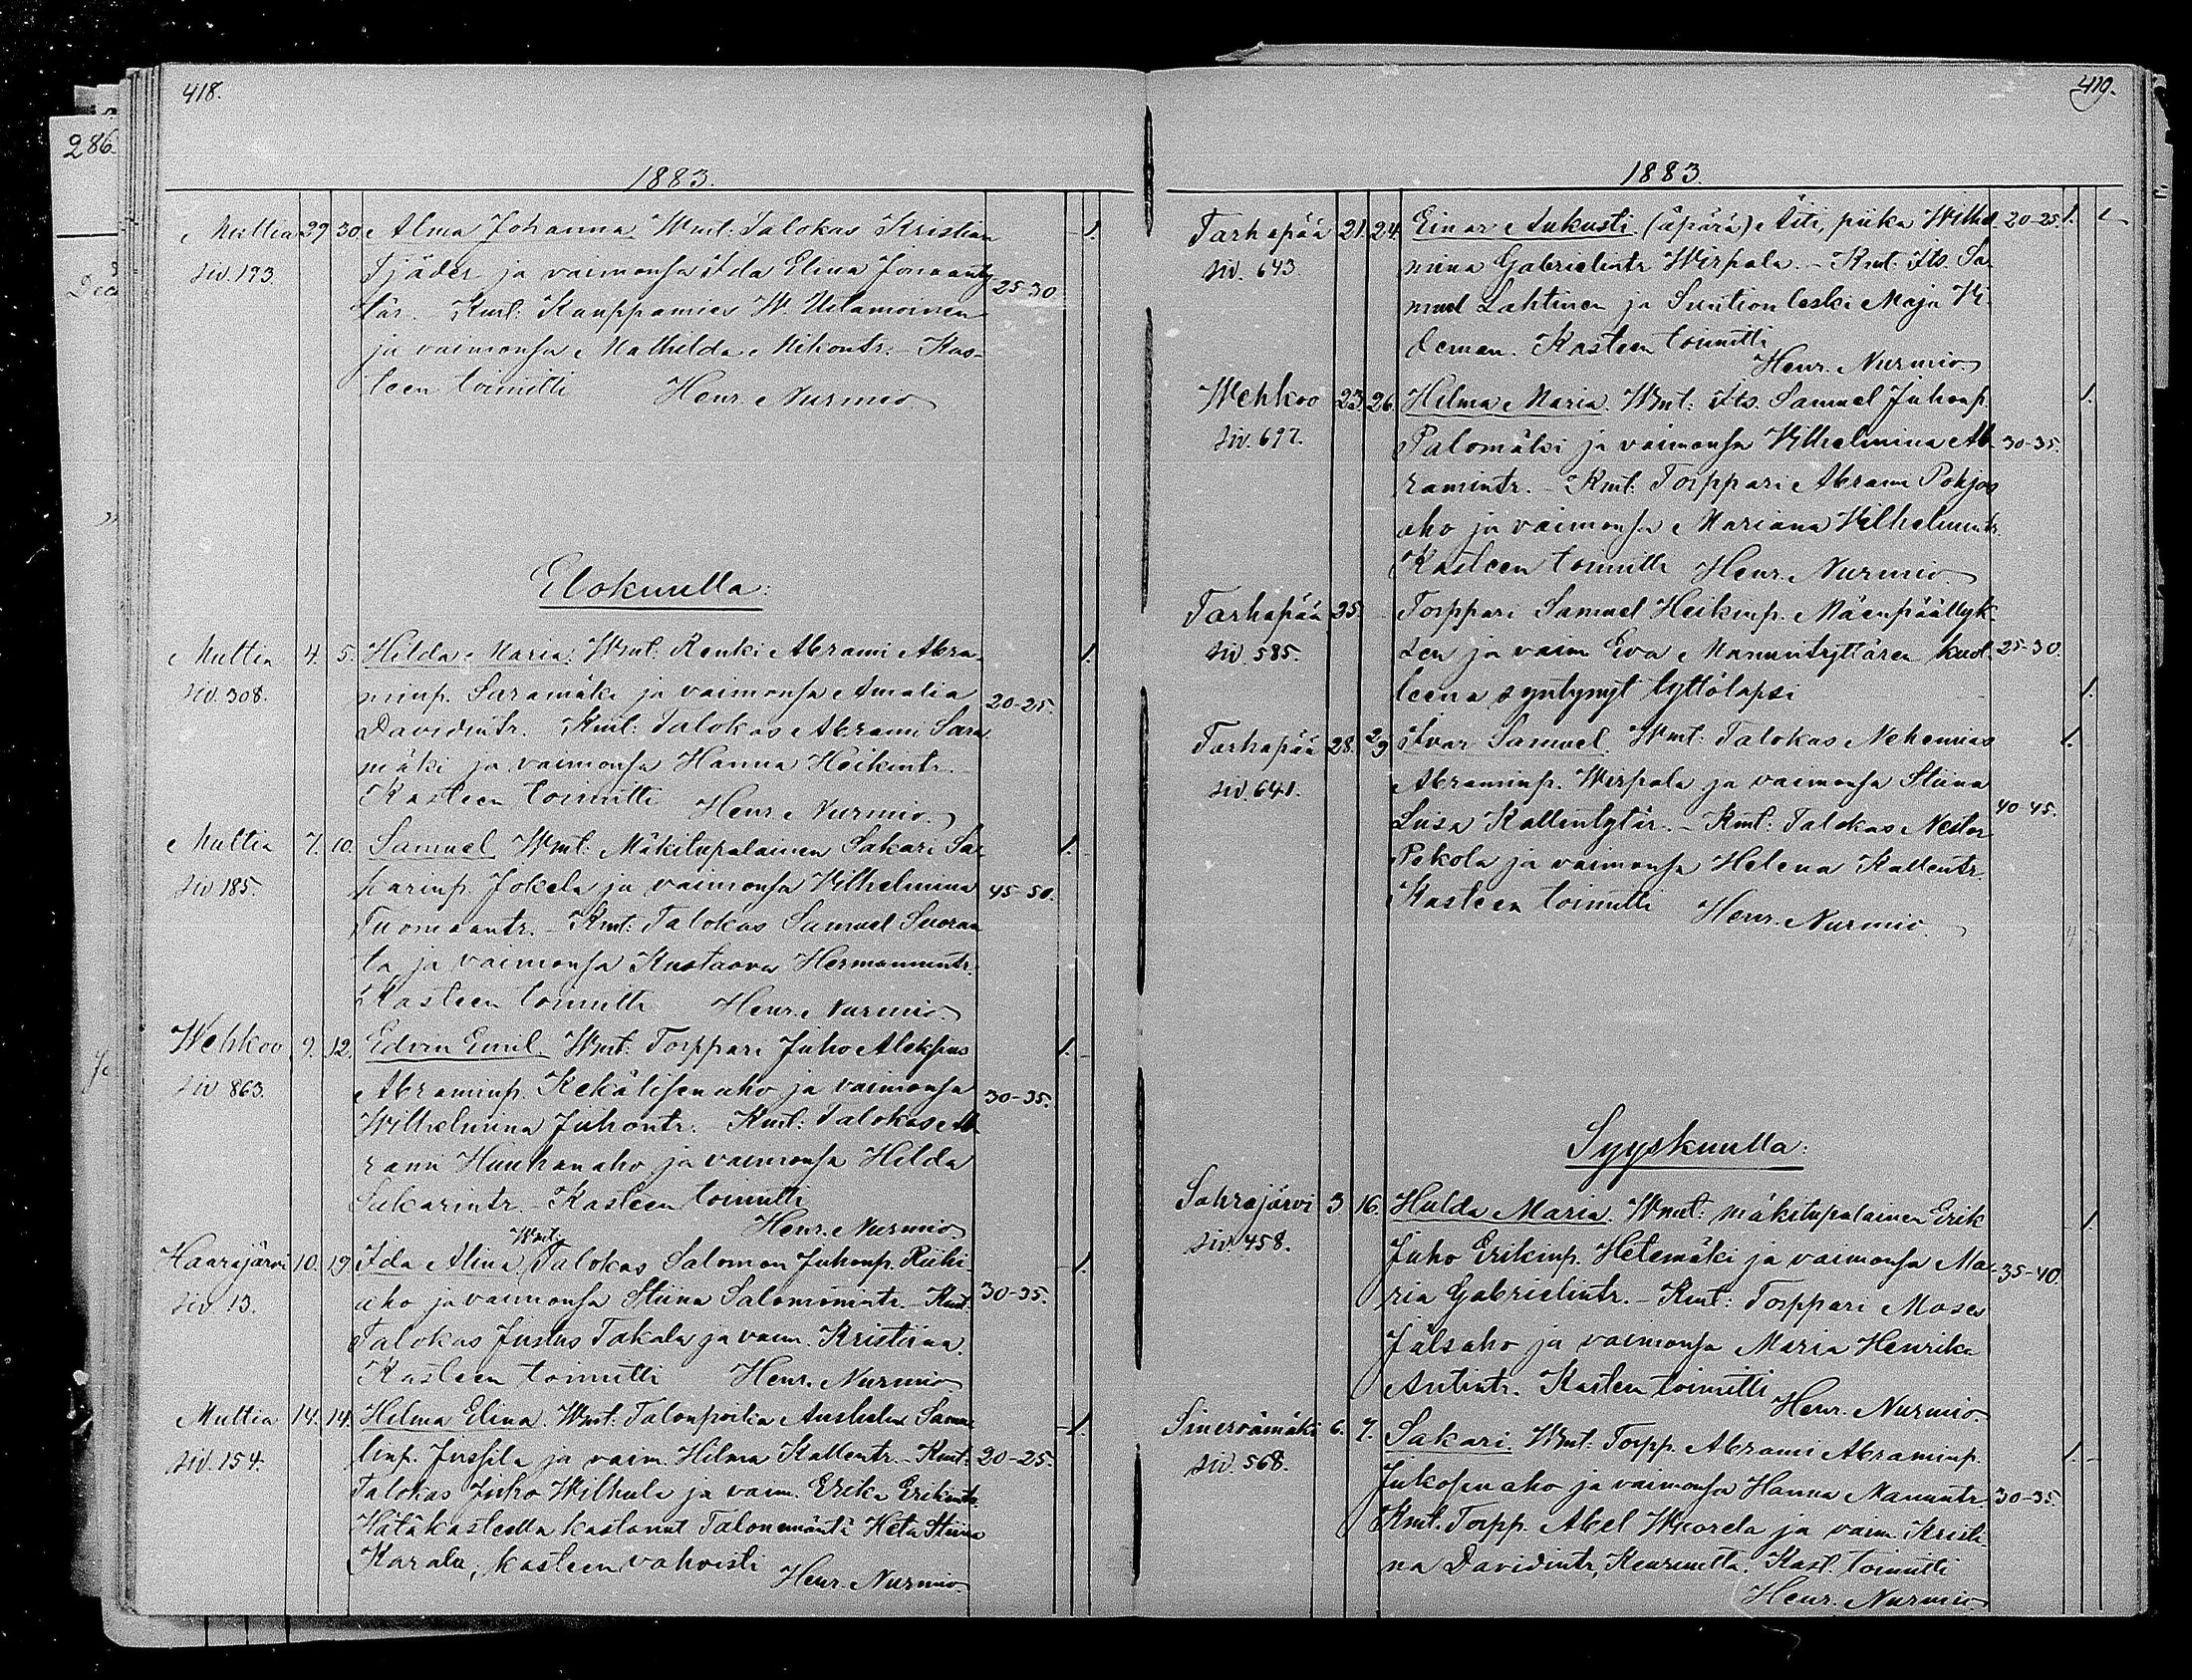 418.
286.
1883.
Multia 29 30 Alma Johanna Wmt. Talokas Kristian 1.
siv. 193. Sjäder ja vaimonsa Ida Elina Joonaanty 25-30
tär. Kml: Kauppamies W.
ja vaimonsa Mathilda Mikontr. Kas-
teen toimitti Henr. Nurmio
Elokuulla:
Multia 4. 5. Hilda Maria. Wmt. Renki Abrami Abra- 1.
siv. 308. minp. Saramäki ja vaimonsa Amalia 20-25.
Davidintr. Kml: Talokas Abrami Sara
mäki ja vaimonsa Hanna Heikintr.
Kasteen toimitti Henr. Nurmio.
Multia 7. 10. Samuel Wmt: Mäkitupalainen Sakari Sa- 1.
siv 185. karinp. Jokela ja vaimonsa Wilhelmina 45-50.
Tuomaantr. - Kmt: Talokas Samuel Suoran
ta ja vaimonsa Kustaava Hermannintr.
Kasteen toimitti Henr. Nurmio.
Wehkoo 9. 12. Edvin Emil Wmt: Torppari Juho Aleksius 1.
siv 863. Abraminp. Kekälisenaho ja vaimonsa 30-35.
Wilhelmina Juhontr. - Kmt: Talokas Ab
rami Huuhanaho ja vaimonsa Hilda
Sakarintr. - Kasteen toimitti
Henr. Nurmio
Haarajärvi 10. 19. Ida Alina Wmt. Talokas Salomon Juhonp. Riihi 1.
siv 13. aho ja vaimonsa Stiina Salomonintr. - Kmt. 30-35.
Talokas Justus Takala ja vaim. Kristiina.
Kasteen toimitti Henr. Nurmio
Multia 14. 14. Hilma Elina. Wmt: Talonpoika Anshelm Samu 1.
siv. 154. linp. Jussila ja vaim. Hilma Kallentr. - Kmt: 20-25.
Talokas Juho Wilhula ja vaim. Erika Erikintr.
Hätäkasteella kastanut Talonemäntä Heta Stiina
Karala, kasteen vahvisti Henr. Nurmio
419.
1883.
Tarhapää 21. 24. Einar Aukusti. (äpärä) Äiti, piika Wilhel 20-25. 1.
siv. 643. mina Gabrielintr Wirpala. - Kmt. Its. Sa
muel Lahtinen ja Suntion leski Maja Wi
deman. Kasteen toimitti
Henr. Nurmio
Wehkoo 23. 26. Hilma Maria. Wmt: Its. Samuel Juhonp. 1.
siv. 697. Palomäki ja vaimonsa Wilhelmina Ab 30-35.
ramintr. - Kmt: Torppari Abrami Pohjos
aho ja vaimonsa Mariana Wilhelmintr.
Kasteen toimitti Henr. Nurmio.
Tarhapää 25. Torppari Samuel Heikinp. Mäenpäällyk-
siv. 585. sen ja vaim Eva Manuntyttären kuol- 25-30.
leena syntynyt tyttölapsi 1.
Tarhapää 28. 29 Ivar Samuel. Wmt: Talokas Nehemias 1.
siv. 641. Abraminp. Wirpala ja vaimonsa Stiina
Luisa Kallentytär. - Kmt: Talokas Nestor 40-45.
Pekola ja vaimonsa Helena Kallentr.
Kasteen toimitti Henr. Nurmio.
Syyskuulla:
Sahrajärvi 3 16. Hulda Maria. Wmt: mäkitupalainen Erik 1.
siv. 458. Juho Erikinp. Hetemäki ja vaimonsa Ma- 35-40.
ria Gabrielintr. - Kmt: Torppari Moses
Jälsaho ja vaimonsa Maria Henrika
Antintr. Kasteen toimitti
Henr. Nurmio.
Sinervämäki 6. 7. Sakari. Wmt: Torpp. Abrami Abraminp. 1.
siv. 568. Jukosenaho ja vaimonsa Hanna Manuntr. 30-35.
Kmt. Torpp. Abel Wuorela ja vaim. Kristi-
na Davidintr, Keuruulta. Kast. toimitti
Henr. Nurmio